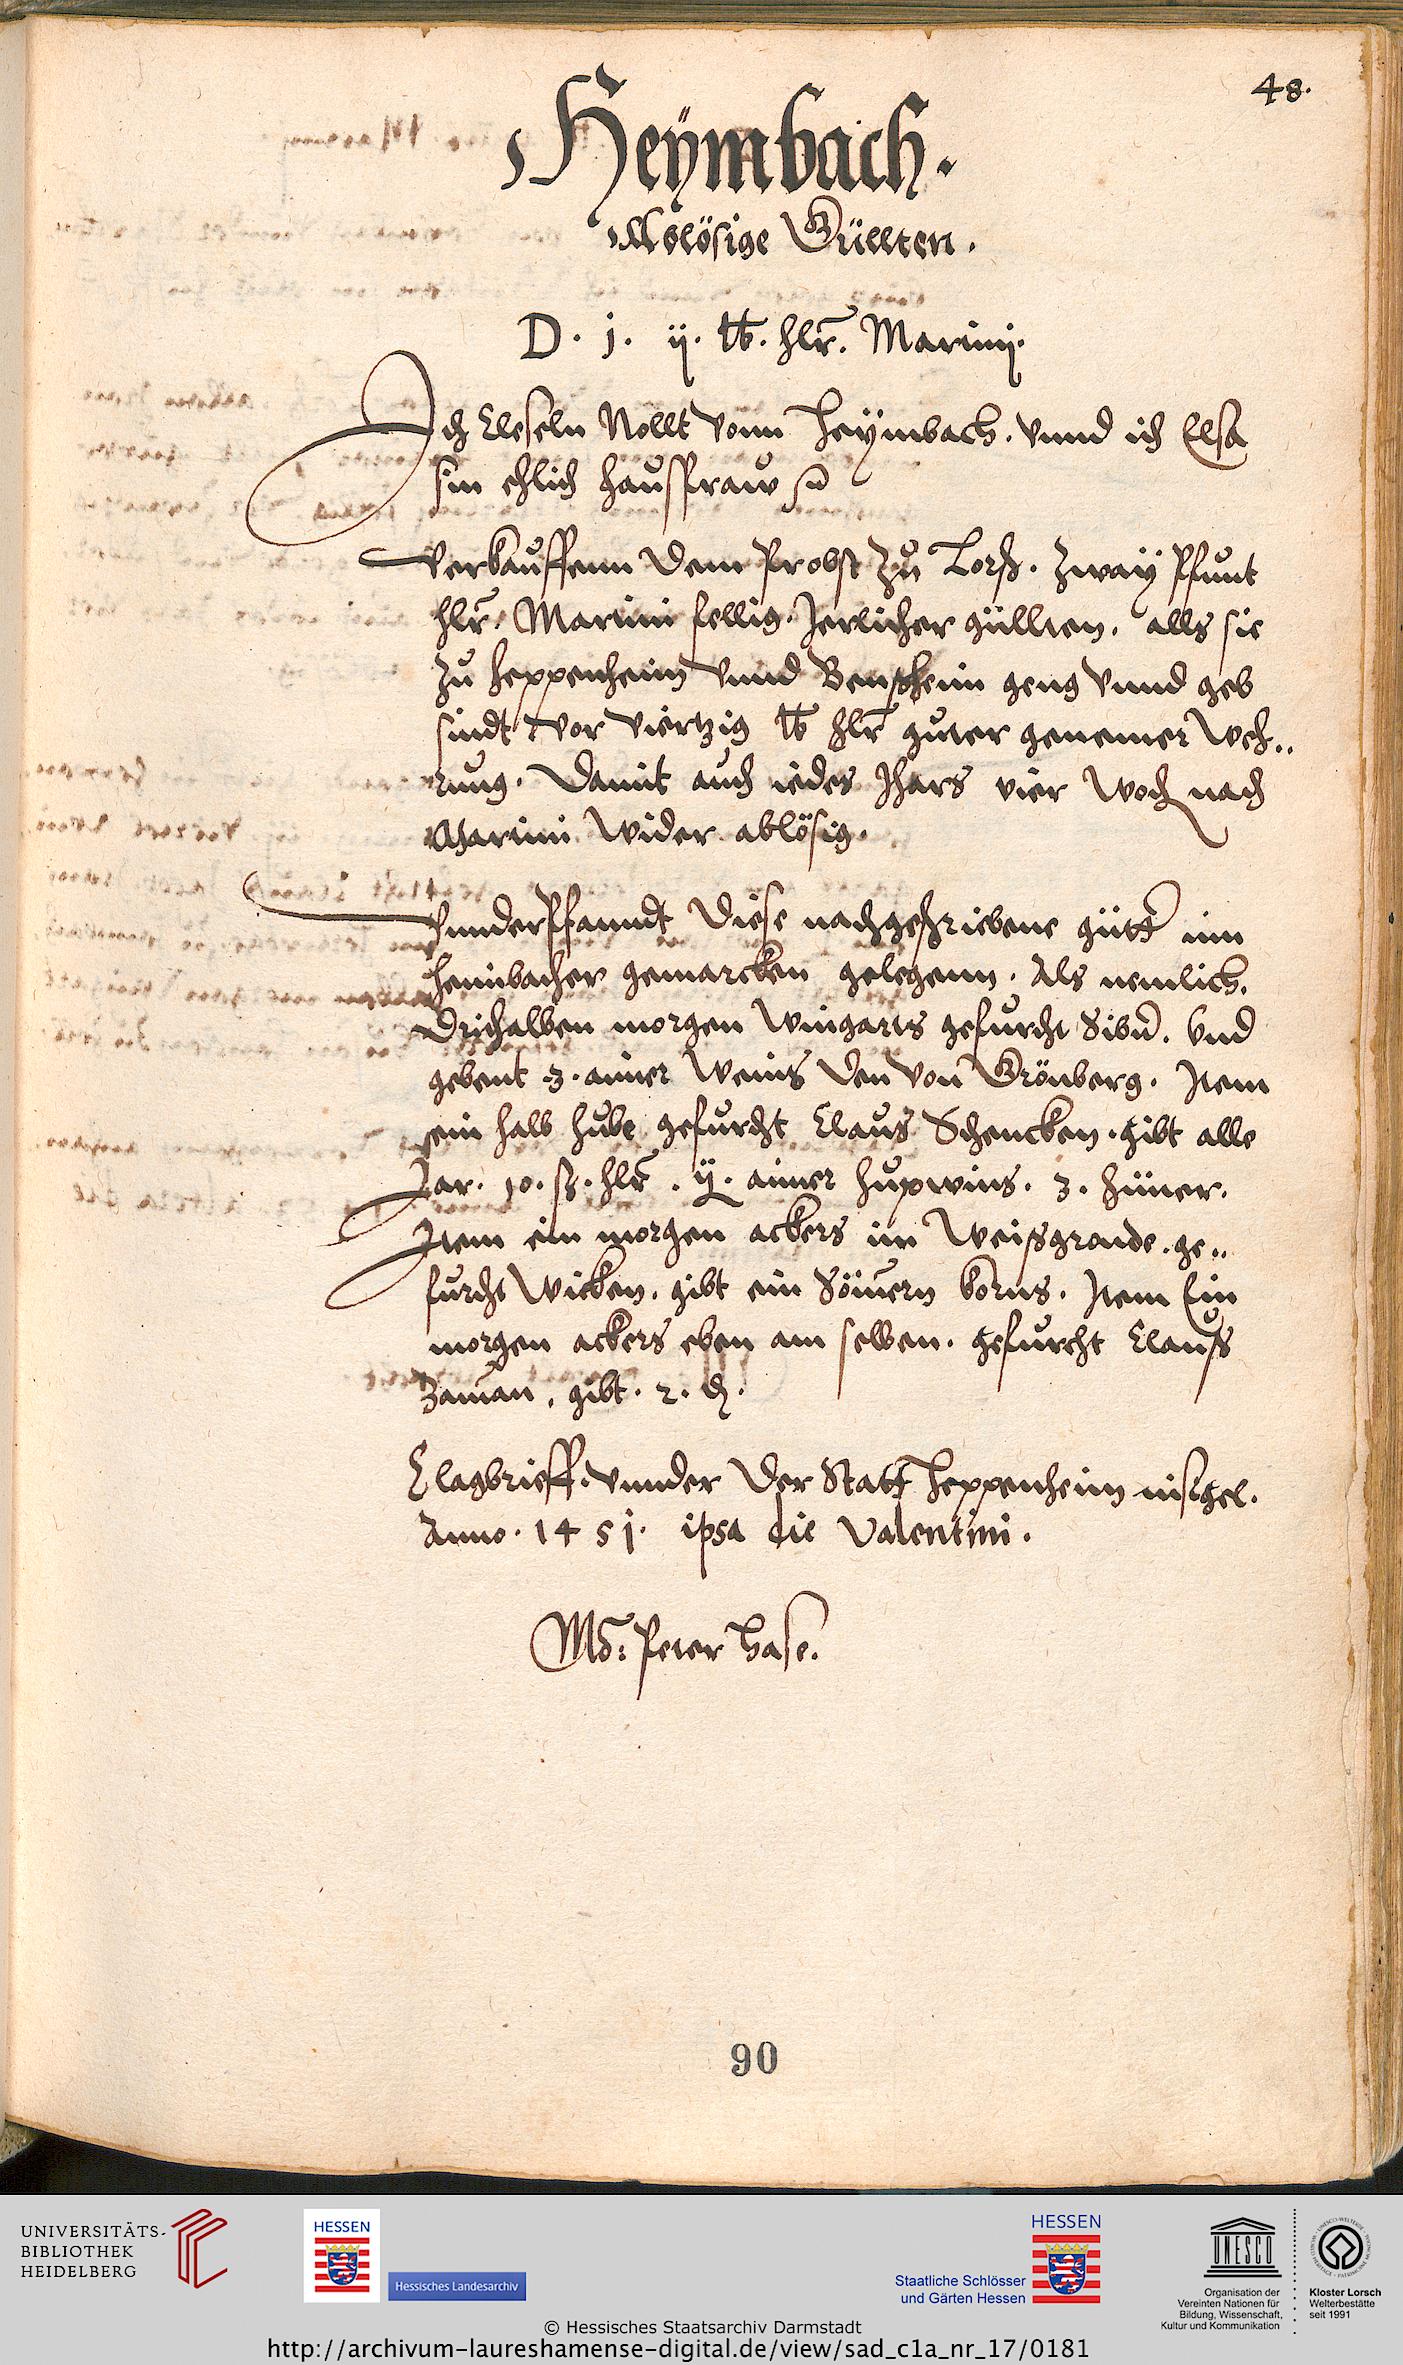 48.
Heÿmbach.
Ablösige Güllten.
D. j. ij. ℔. hlr̄. Martinj.
Ich Cleseln Nollt vonn Heÿmbach. vnnd ich Elsa
sin ehlich hausfraw
Verkauffenn dem Probst zu Lorsch. zwaÿ Pfunt
hlr̄. Martini fellig. Jerlicher güllten. alls sie
zu Heppenheim vnnd Bensheim geng vnnd geb
sindt. vor viertzig ℔ hlr̄ guter genemer Weh..
rung. Damit auch iedes Jhars vier Woch nach
Martini wider ablösig.
Vnnderpfanndt diese nachgeschriebene gütt inn
Heimbacher gemarcken gelegenn. Als nemlich.
Drithalben morgen Wingarts gefurcht . Vnd
gebent 3. aimer Weins den von Crönberg. Item
ein halb hube gefurcht Claus Schencken. gibt alle
Jar. 10. ß. hlr̄. ij. aimer hupwins. 3. hüner.
Item ein morgen ackers im Weißgronde. ge..
furcht Wicken. gibt ein Sömern korns. Item Ein
morgen ackers eben am selben. gefurcht Clauß
Zaman, gibt. 2. ₰.
Clagbrieff. vnnder der Statt Heppenheim insigel.
Anno. 1451. ipsa die Valentini.
Mō: Peter Hase.
90
UNIVERSITÄTS-
BIBLIOTHEK
HEIDELBERG
HESSEN
Hessisches Landesarchiv
HESSEN
Staatliche Schlösser
und Gärten Hessen
UNESCO
Organisation der
Vereinten Nationen für
Bildung, Wissenschaft,
Kultur und Kommunikation
Kloster Lorsch
Welterbestätte
seit 1991
© Hessisches Staatsarchiv Darmstadt
http://archivum-laureshamense-digital.de/view/sad_c1a_nr_17/0181